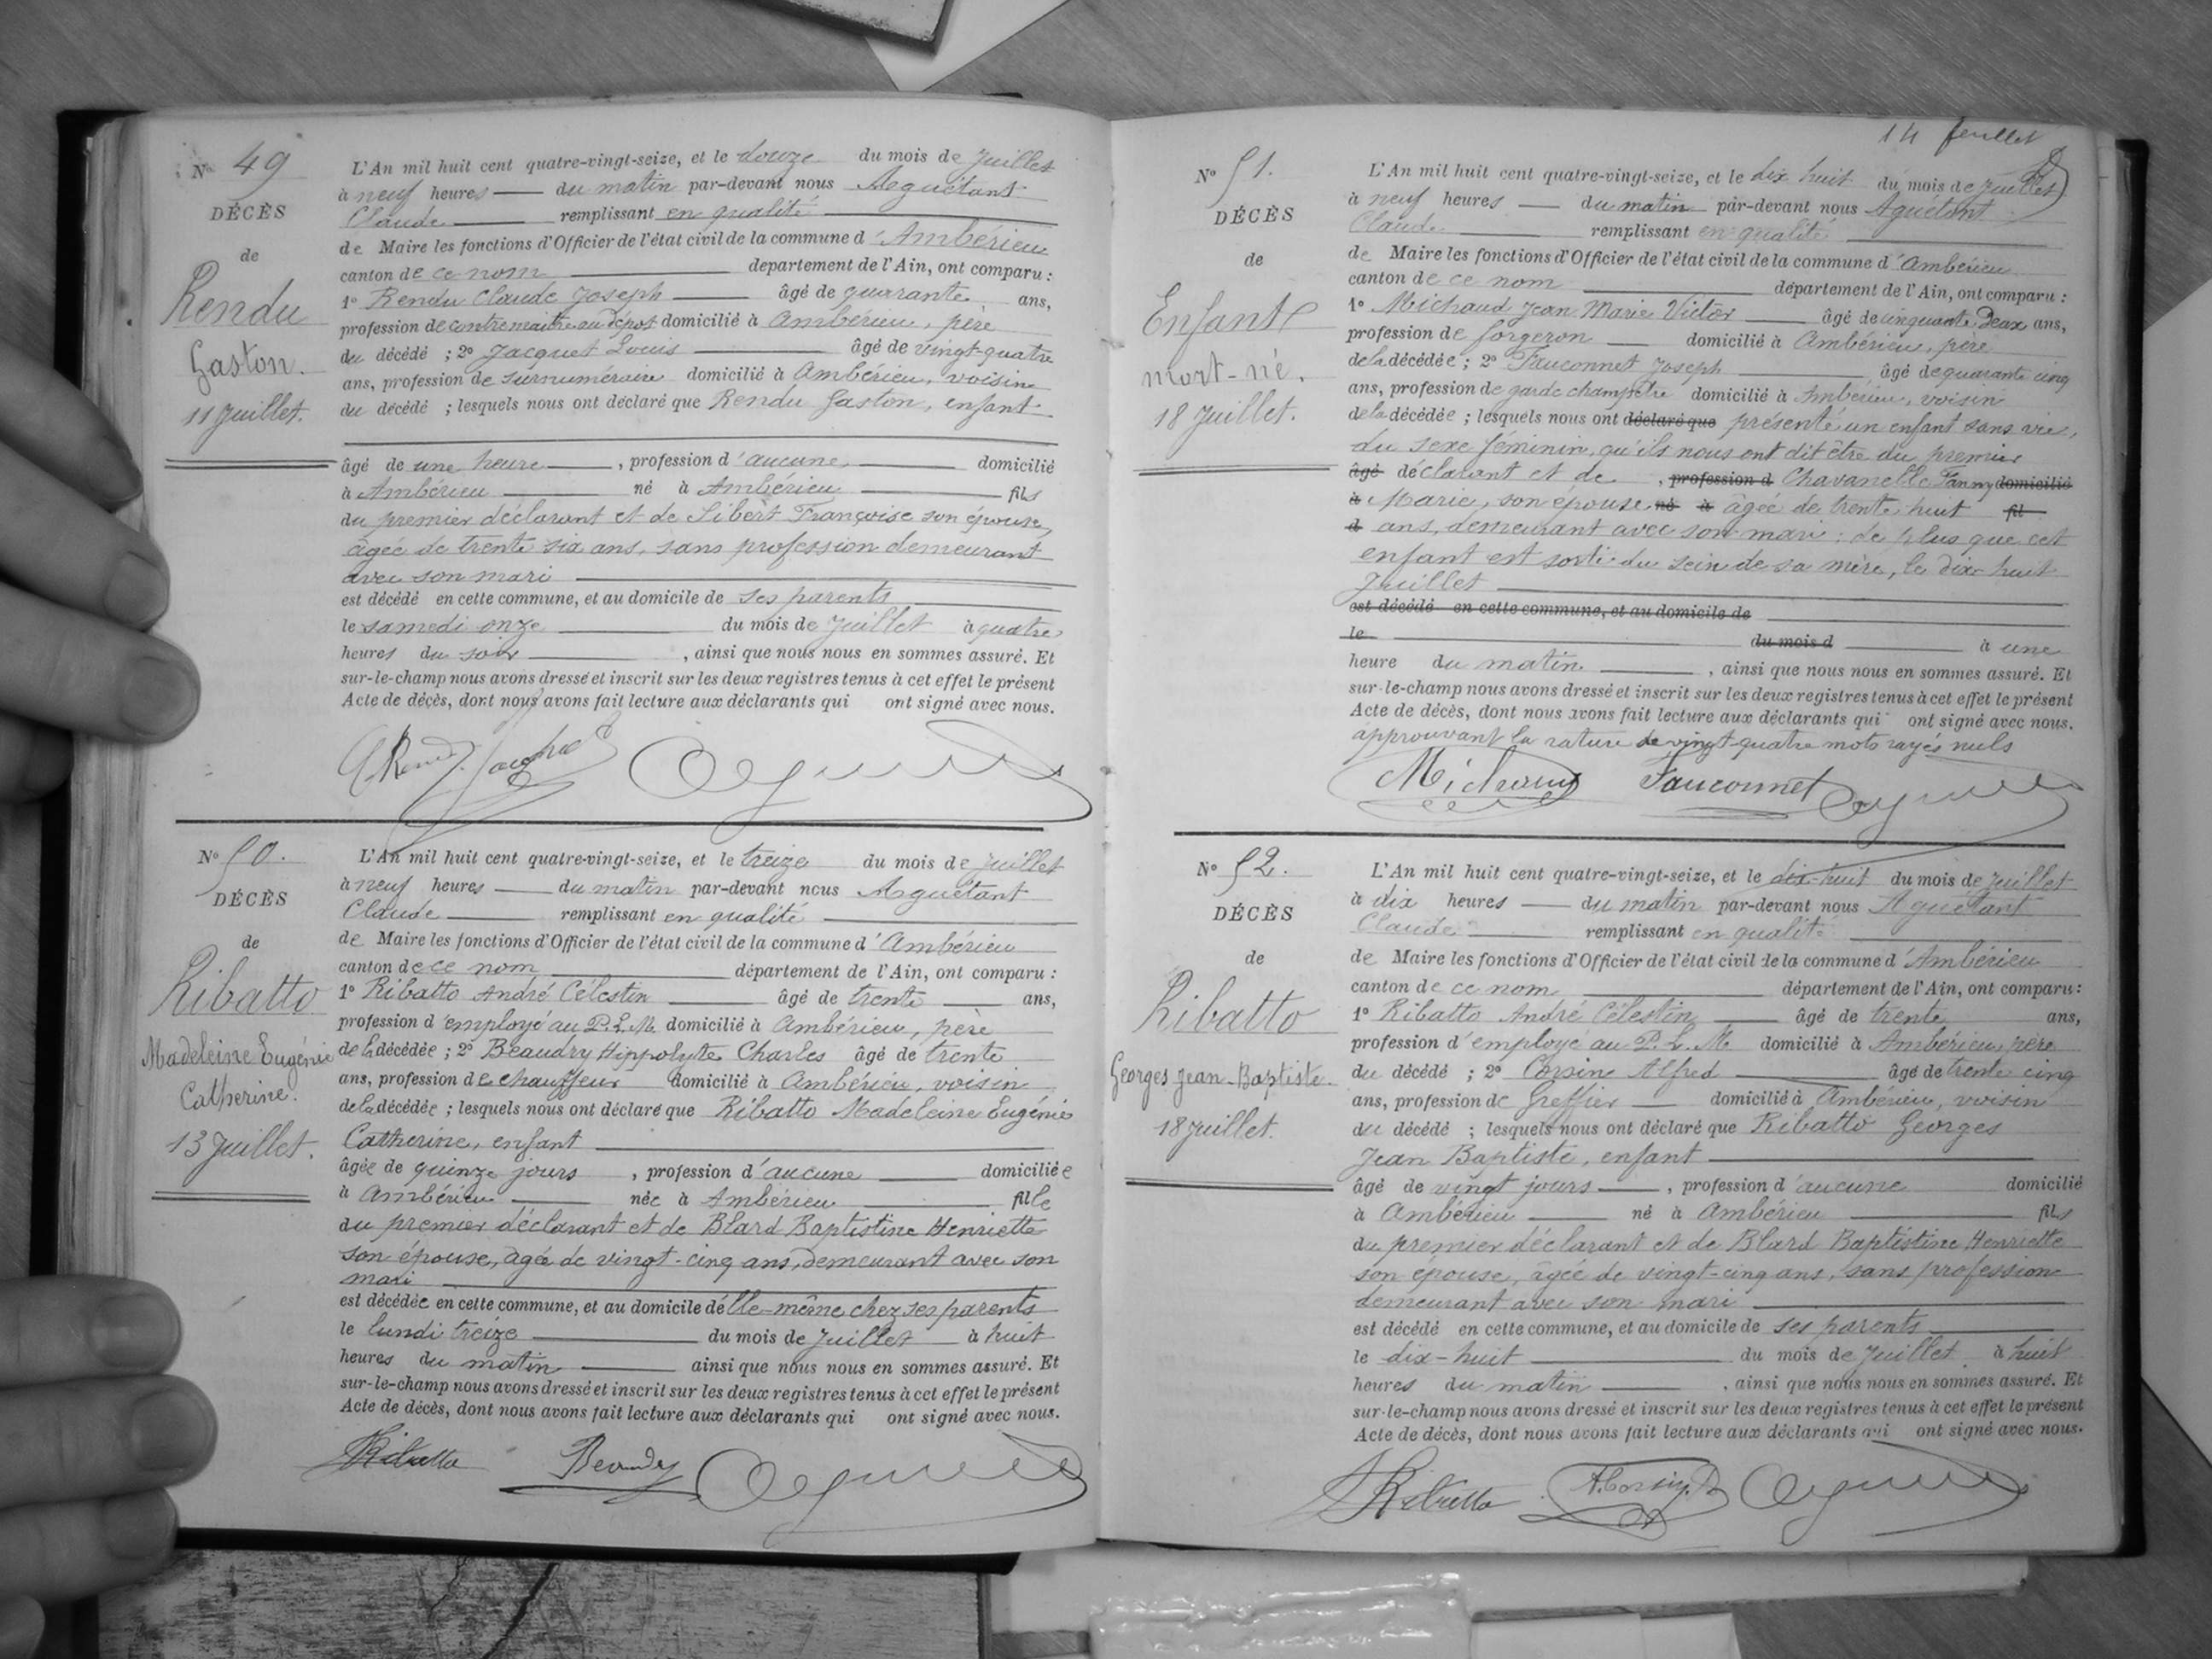 No 49
DÉCÈS
de
Rendu
Gaston.
11 Juillet.
L'An mil huit cent quatre-vingt-seize, et le douze du mois de Juillet
à neuf heures — du matin par-devant nous Aguétant
Claude — remplissant en qualité
de Maire les fonctions d'Officier de l'état civil de la commune d'Ambérieu
canton de ce nom — département de l'Ain, ont comparu :
1° Rendu Claude Joseph — âgé de quarante ans,
profession de contremaitre au dépot domicilié à Ambérieu, père
du décédé ; 2° Jacquet Louis — âgé de vingt-quatre
ans, profession de surnuméraire domicilié à Ambérieu, voisin
du décédé ; lesquels nous ont déclaré que Rendu Gaston, enfant
âgé de une heure —, profession d'aucune — domicilié
à Ambérieu — né à Ambérieu — fils
du premier déclarant et de Sibert Françoise son épouse,
âgée de trente six ans, sans profession demeurant
avec son mari —
est décédé en cette commune, et au domicile de ses parents
le samedi onze — du mois de Juillet à quatre
heures du soir —, ainsi que nous nous en sommes assuré. Et
sur-le-champ nous avons dressé et inscrit sur les deux registres tenus à cet effet le présent
Acte de décès, dont nous avons fait lecture aux déclarants qui ont signé avec nous.
No 50.
DÉCÈS
de
Ribatto
Madeleine Eugénie
Catherine.
13 Juillet.
L'An mil huit cent quatre-vingt-seize, et le treize du mois de Juillet
à neuf heures — du matin par-devant nous Aguétant
Claude — remplissant en qualité
de Maire les fonctions d'Officier de l'état civil de la commune d'Ambérieu
canton de ce nom — département de l'Ain, ont comparu :
1° Ribatto André Célestin — âgé de trente — ans,
profession d'employé au P.L.M. domicilié à Ambérieu, père
de la décédée ; 2° Beaudry Hippolyte Charles âgé de trente
ans, profession de chauffeur domicilié à Ambérieu, voisin
de la décédée ; lesquels nous ont déclaré que Ribatto Madeleine Eugénie
Catherine, enfant —
âgée de quinze jours, profession d'aucune — domiciliée
à Ambérieu — née à Ambérieu — fille
du premier déclarant et de Blard Baptistine Henriette
son épouse, âgée de vingt-cinq ans, demeurant avec son
mari —
est décédée en cette commune, et au domicile délle-même chez ses parents
le lundi treize — du mois de Juillet — à huit
heures du matin — ainsi que nous nous en sommes assuré. Et
sur-le-champ nous avons dressé et inscrit sur les deux registres tenus à cet effet le présent
Acte de décès, dont nous avons fait lecture aux déclarants qui ont signé avec nous.
Ribatto Beaudry
14 feuillet
No 51.
DÉCÈS
de
Enfant
mort-né.
18 Juillet.
L'An mil huit cent quatre-vingt-seize, et le dix huit du mois de Juillet
à neuf heures — du matin par-devant nous Aguétant
Claude — remplissant en qualité
de Maire les fonctions d'Officier de l'état civil de la commune d'Ambérieu
canton de ce nom — département de l'Ain, ont comparu :
1° Michaud Jean Marie Victor — âgé de cinquante Deux ans,
profession de forgeron — domicilié à Ambérieu, père
de la décédée ; 2° Fauconnet Joseph — âgé de quarante cinq
ans, profession de garde champêtre domicilié à Ambérieu, voisin
de la décédée ; lesquels nous ont déclaré que présenté un enfant sans vie,
du sexe féminin, qu'ils nous ont dit être du premier
âgé déclarant et de , profession d Chavanelle Fanny domicilié
à Marie, son epouse né à âgée de trente huit fil
d ans, demeurant avec son mari : de plus que cet
enfant est sorti du sein de sa mère, le dix huit
Juillet —
est décédé en cette commune, et au domicile de
le — du mois d — à une
heure du matin —, ainsi que nous nous en sommes assuré. Et
sur-le-champ nous avons dressé et inscrit sur les deux registres tenus à cet effet le présent
Acte de décès, dont nous avons fait lecture aux déclarants qui ont signé avec nous.
approuvant la rature de vingt-quatre mots rayés nuls
Michaud Fauconnet
No 52.
DÉCÈS
de
Ribatto
Georges Jean-Baptiste.
18 Juillet.
L'An mil huit cent quatre-vingt-seize, et le dix-huit du mois de Juillet
à dix heures — du matin par-devant nous Aguétant
Claude — remplissant en qualité
de Maire les fonctions d'Officier de l'état civil de la commune d'Ambérieu
canton de ce nom — département de l'Ain, ont comparu :
1° Ribatto André Célestin — âgé de trente ans,
profession d'employé au P.L.M. domicilié à Ambérieu, père
du décédé ; 2° Corsin Alfred — âgé de trente cinq
ans, profession de Greffier — domicilié à Ambérieu, voisin
du décédé ; lesquels nous ont déclaré que Ribatto Georges
Jean Baptiste, enfant —
âgé de vingt jours —, profession d'aucune domicilié
à Ambérieu — né à Ambérieu — fils
du premier déclarant et de Blard Baptistine Henriette
son épouse, âgée de vingt-cinq ans, sans profession
demeurant avec son mari —
est décédé en cette commune, et au domicile de ses parents
le dix-huit — du mois de Juillet à huit
heures du matin —, ainsi que nous nous en sommes assuré. Et
sur-le-champ nous avons dressé et inscrit sur les deux registres tenus à cet effet le présent
Acte de décès, dont nous avons fait lecture aux déclarants qui ont signé avec nous.
Ribatto A. Corsin